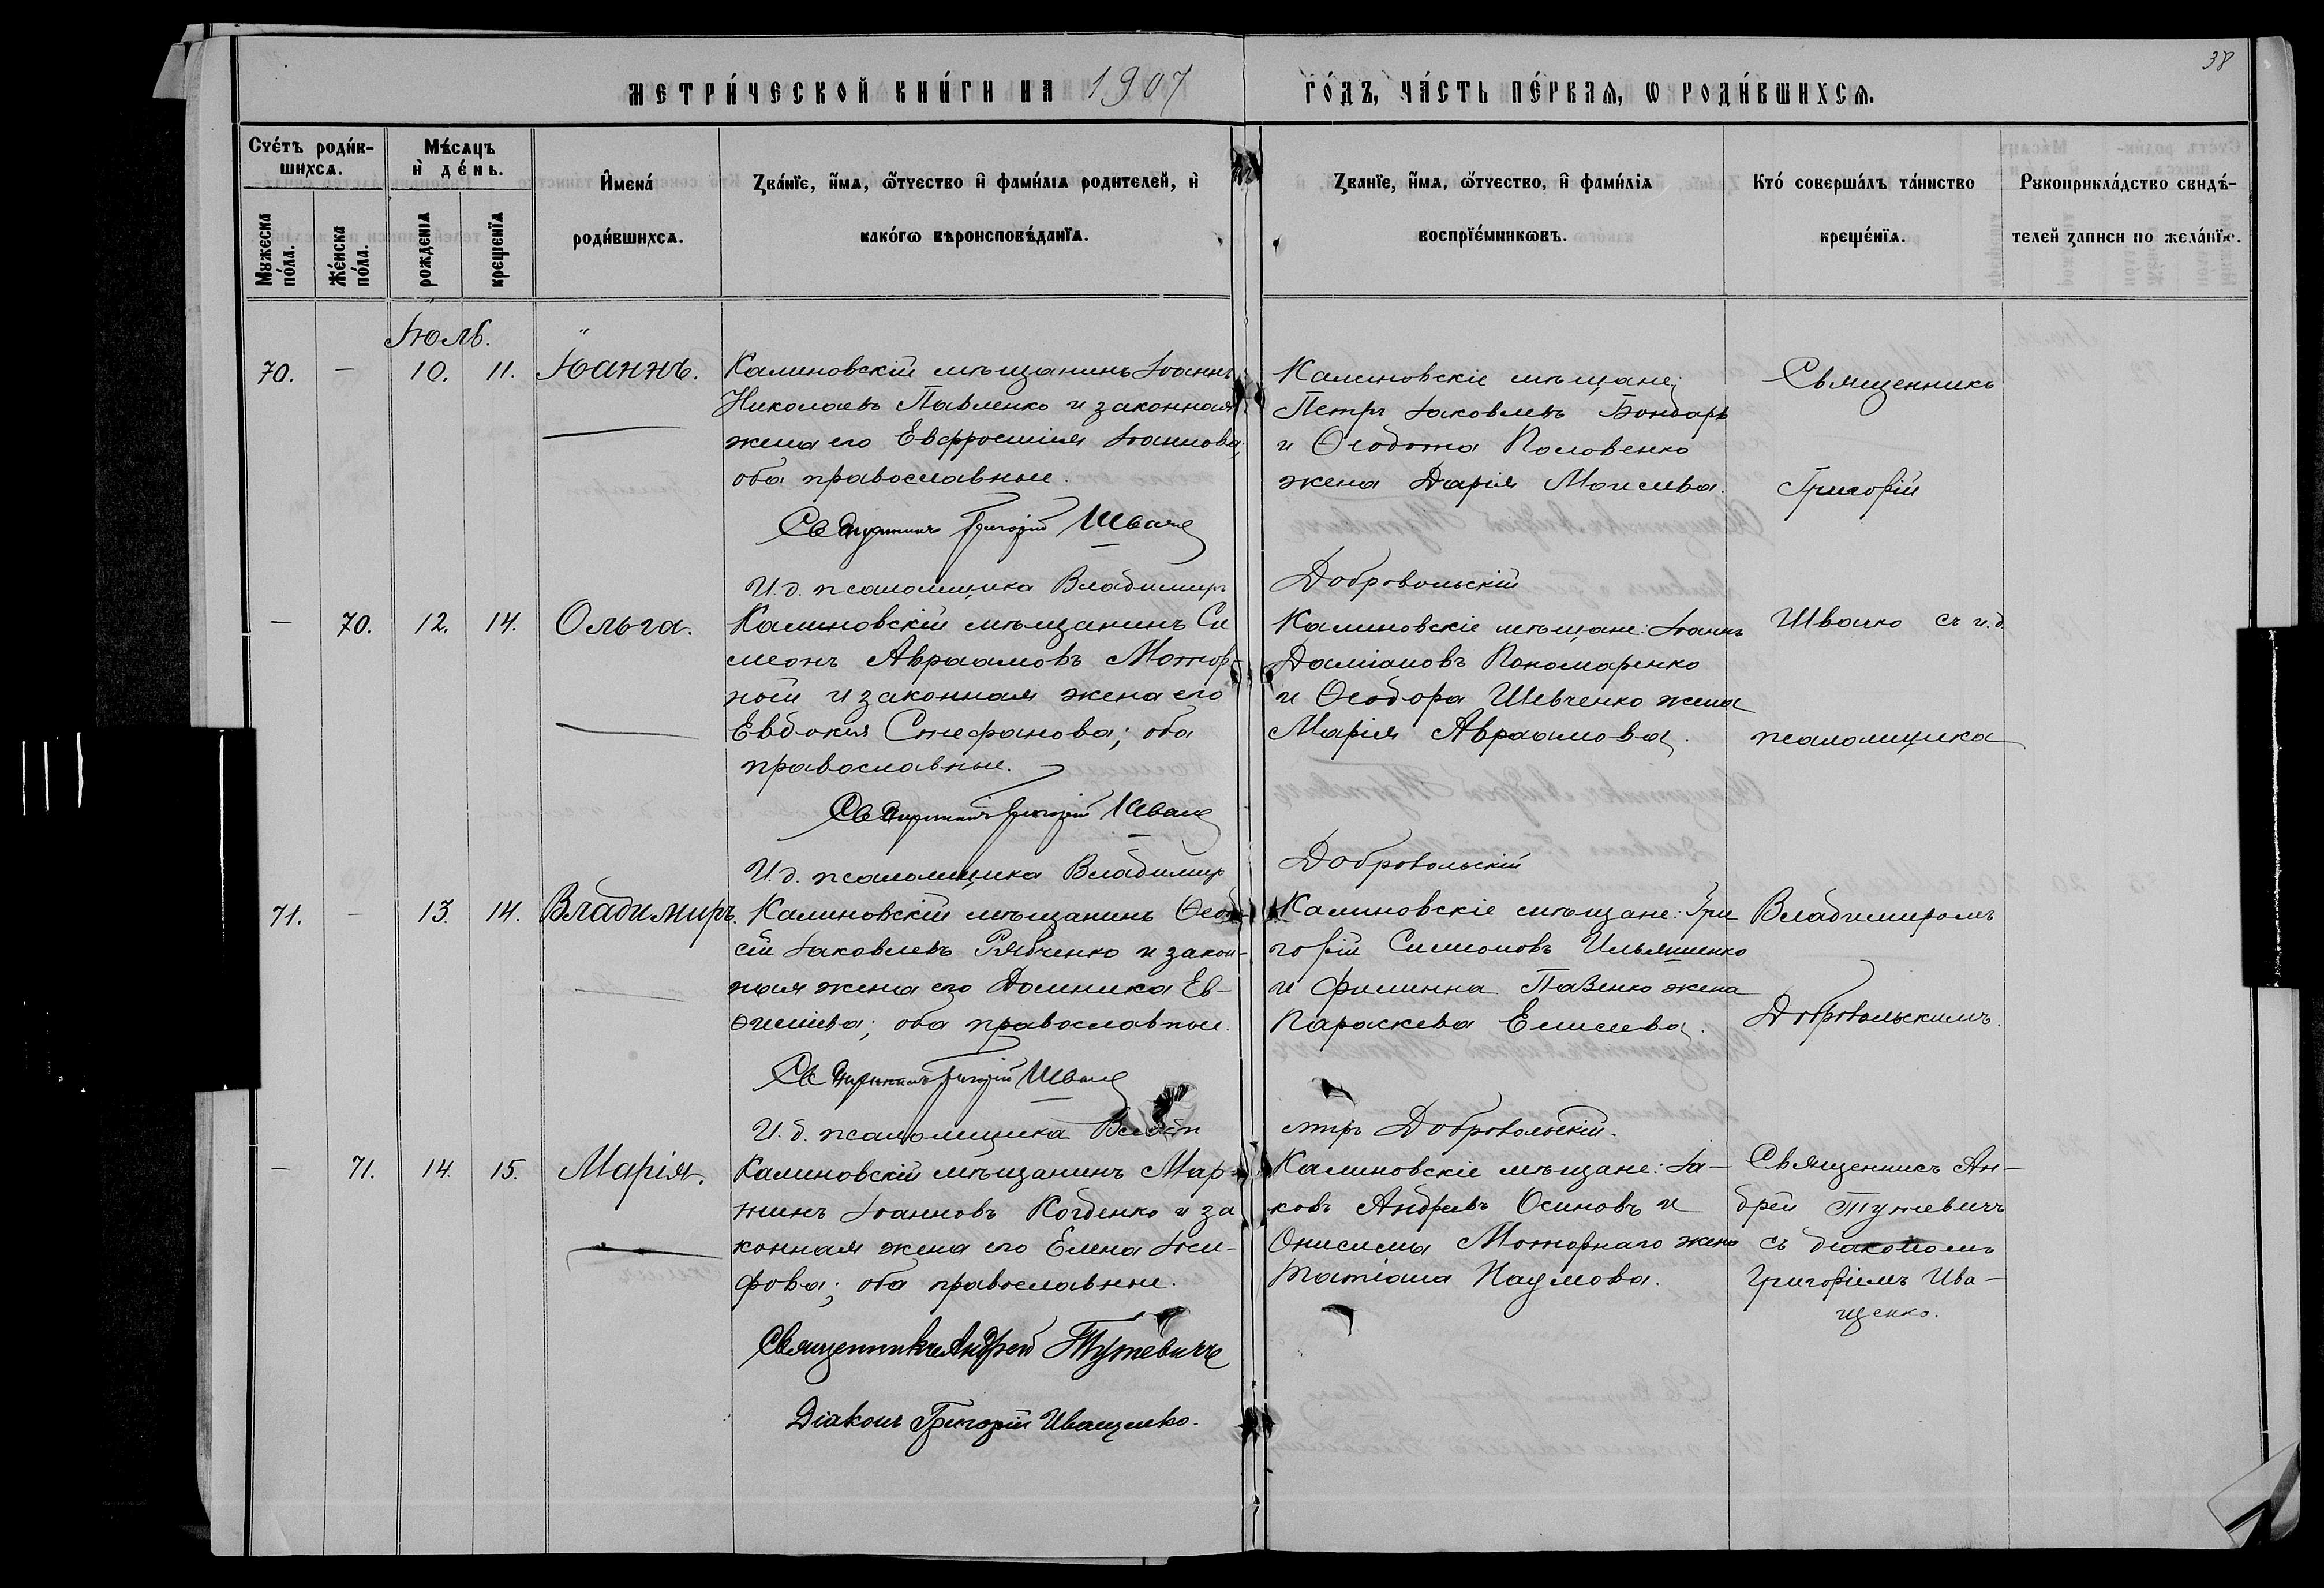 38
МЕТРИ́ЧЕСКОЙ КНИ́ГИ НА 1907 ГО́ДЪ, ЧА́СТЬ ПЕ́РВАѦ, Ѡ РОДИ́ВШИХСѦ.
Счéтъ роди́в-
шихсѧ.
Мѣ́сѧцъ
и҆ де́нь.
Мужеска
по́ла.
Же́нска
по́ла.
рожденїѧ
крещенїѧ
И҆мена́
роди́вшихсѧ.
Зва́нїе, и҆́мѧ, ѻ҆́тчество и҆ фами́лїѧ родителей, и҆
како́гѡ вѣроисповѣ́данїѧ.
Званїе, и҆́мѧ, ѻ҆́тчество, и҆ фами́лїѧ
воспрїе́мникѡвъ.
Кто́ соверша́лъ та́инство
креще́нїѧ.
Рукоприкла́дство свидѣ́-
телей записи по жела́нїю.
Іюль.
70. — 10. 11. Іоаннъ.
Калиновскій мѣщанинъ Іоаннъ
Николаевъ Павленко и законная
жена его Евфросинія Іоаннова,
оба православные.
Священникъ Григорій Швайко
И. д. псаломщика Владимиръ Добровольскій
Калиновскіе мѣщане:
Петръ Іаковлевъ Бондарь
и Ѳеодота Половенко
жена Дарія Моисеева.
Священникъ
Григорій
— 70. 12. 14. Ольга.
Калиновскій мѣщанинъ Си
меонъ Авраамовъ Мотор-
ный и законная жена его
Евдокія Стефанова; оба
православные.
Священникъ Григорій Швайко
И. д. псаломщика Владимиръ Добровольскій
Калиновскіе мѣщане: Іоаннъ
Даміановъ Пономаренко
и Ѳеодора Шевченко жена
Марія Авраамова.
Швайко съ и. д.
псаломщика
71. — 13. 14. Владимиръ.
Калиновскій мѣщанинъ Ѳеодо-
сій Іаковлевъ Рябченко и закон-
ная жена его Домника Ев-
ѳиміева; оба православные.
Священникъ Григорій Швайко
И. д. псаломщика Влади миръ Добровольскій.
Калиновскіе мѣщане: Гри
горій Симеоновъ Ильяшенко
и Филиппа Пазенко жена
Параскева Елисеева.
Владимиромъ
Добровольскимъ.
— 71. 14. 15. Марія.
Калиновскій мѣщанинъ Мар-
тинъ Іоанновъ Когденко и за
конная жена его Елена Іоси-
фова; оба православные.
Священникъ Андрей Тутевичъ
Діаконъ Григорій Иващенко.
Калиновскіе мѣщане: Іа-
ковъ Андреевъ Осиновъ и
Онисима Моторнаго жена
Татіана Наумова.
Священникъ Ан-
дрей Тутевичъ
съ діакономъ
Григоріемъ Ива-
щенко.